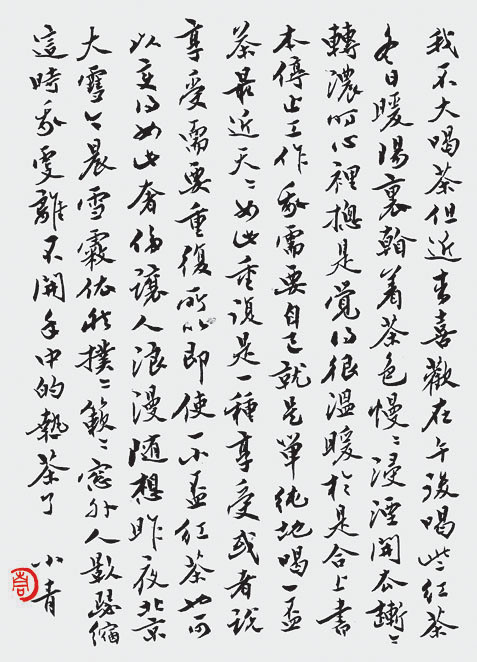 我不大喝茶但近来喜歡在午後喝些紅茶
冬日暖陽裏看着茶色慢〻浸湮開去漸〻
轉濃的心裡總是覺得很溫暖於是合上書
本停止工作我需要自己就是單純地喝一盃
茶最近天〻如此重複是一種享受或者説
享受需要重復所以即使一小盃紅茶也可
以变得如此奢侈讓人浪漫随想昨夜北京
大雪今晨雪霰依然撲〻簌〻窓外人影瑟縮
這時我更離不開手中的熱茶了
小青